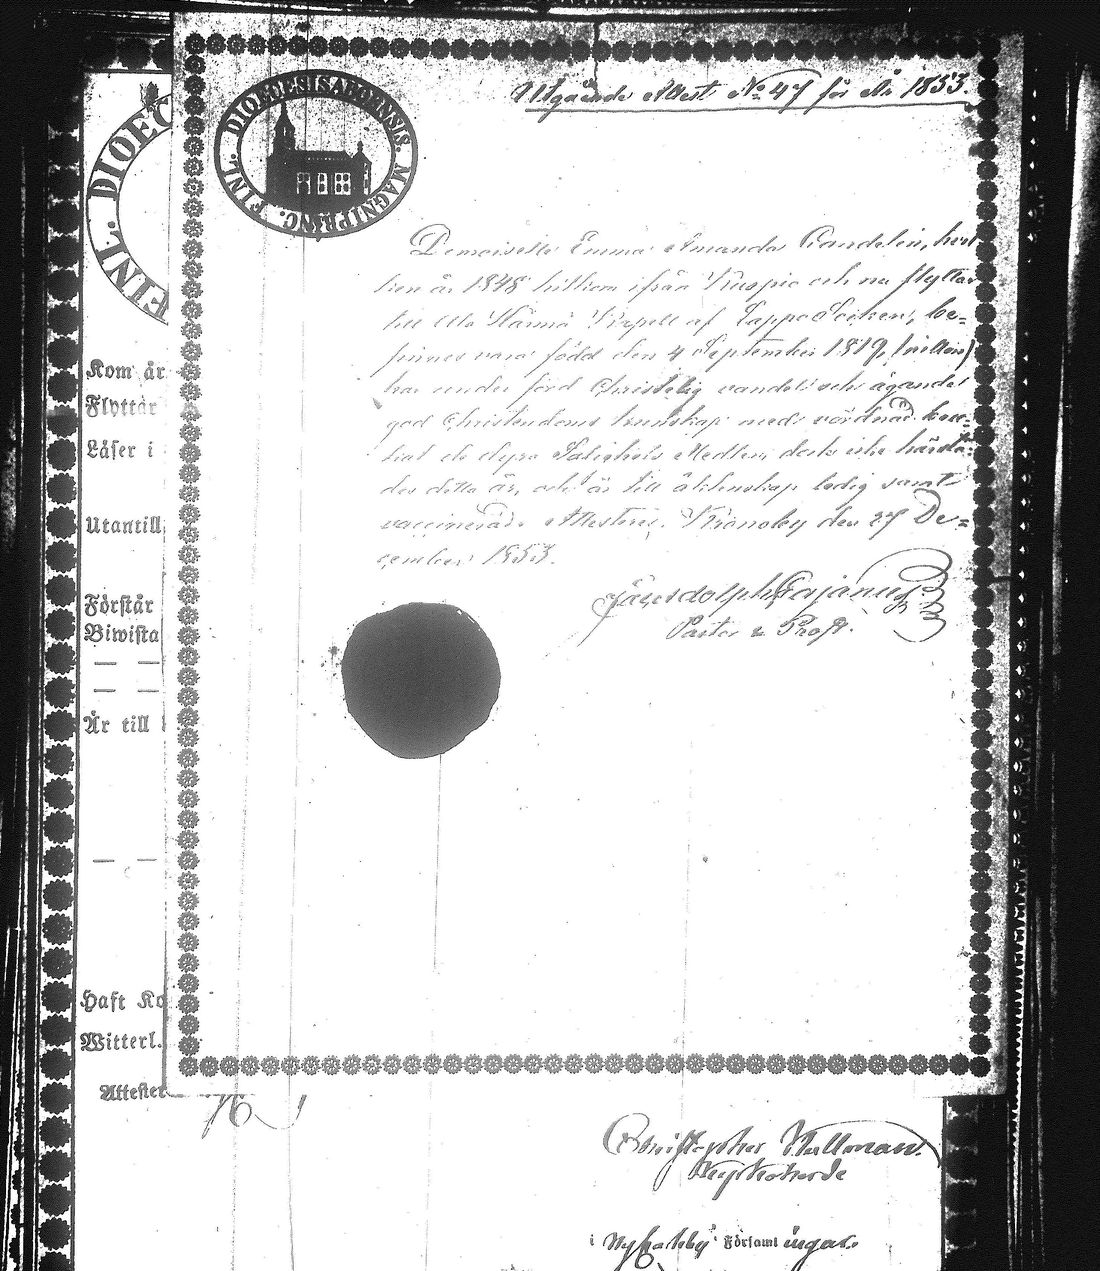 Utgående Attest No 47 för År 1853.
DIOECESIS ABOENSIS. MAGNI PRINC. FINL.
DIOEC
FINL.
Demoiselle Emma Amanda Candelin, hvil-
ken år 1848 hitkom ifrån Kuopio och nu flyttar
till Alla Härmä Kapell af Lappo Socken, be-
finnes vara född den 4 September 1819, (nitton)
har under förd Christelig vandel och ägande
god Christendoms kunskap med vördnad
de dyra Salighets Medlen, dock icke
des detta år, och är till äktenskap ledig samt
vaccinerad. Attesterar, Kronoby den 27 De-
cember 1853.
Cajanus
Pastor & Prost.
Kom år
Flyttar
Läser i
Utantill
Förstår
Biwista
Är till
Haft Ko
Witterl.
Attester
Christopher Wallman.
Kyrkoherde
i Nykarleby Församl ingar.